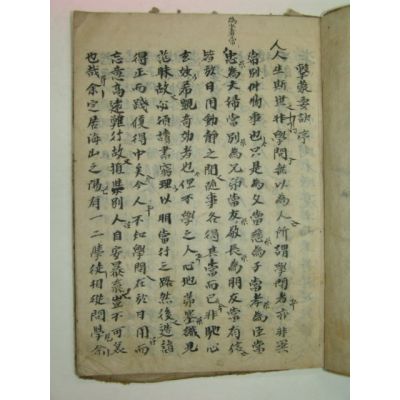 擊蒙要訣序
人生斯世非學問無以為人所謂學問者亦非異
常別件物事也只是為父當慈為子當孝為臣當
為少者當
忠為夫婦當別為兄弟當友敬長為朋友當有信
皆於日用動靜之間隨事各得其當而已非馳心
玄妙希覬奇効者也但不學之人心地茅塞識見
茫昧故必須讀書窮理以明當行之路然後造詣
得正而踐履得中矣今人不知學問在於日用而
妄意高遠難行故推與別人自安暴棄豈不可哀
也哉余定居海山之陽有一二學徒相從問學余